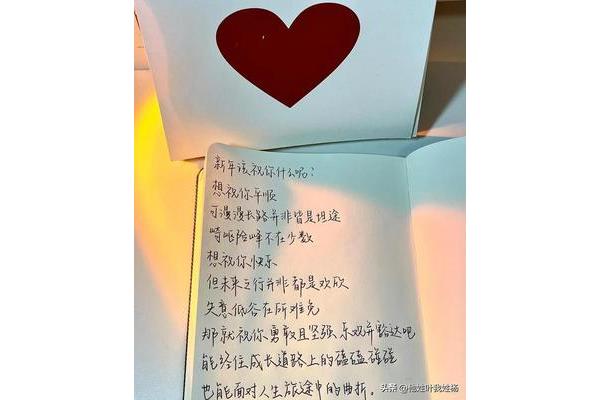 新年该祝你什么呢？
想祝你平顺
可漫漫长路并非皆是坦途
崎岖险峰不在少数
想祝你快乐
但未来之行并非都是欢欣
失意低谷在所难免
那就祝你勇敢且坚强 乐观并豁达吧
能经住成长道路上的磕磕碰碰
也能面对人生旅途中的曲折。
头条@他姓叶我姓杨